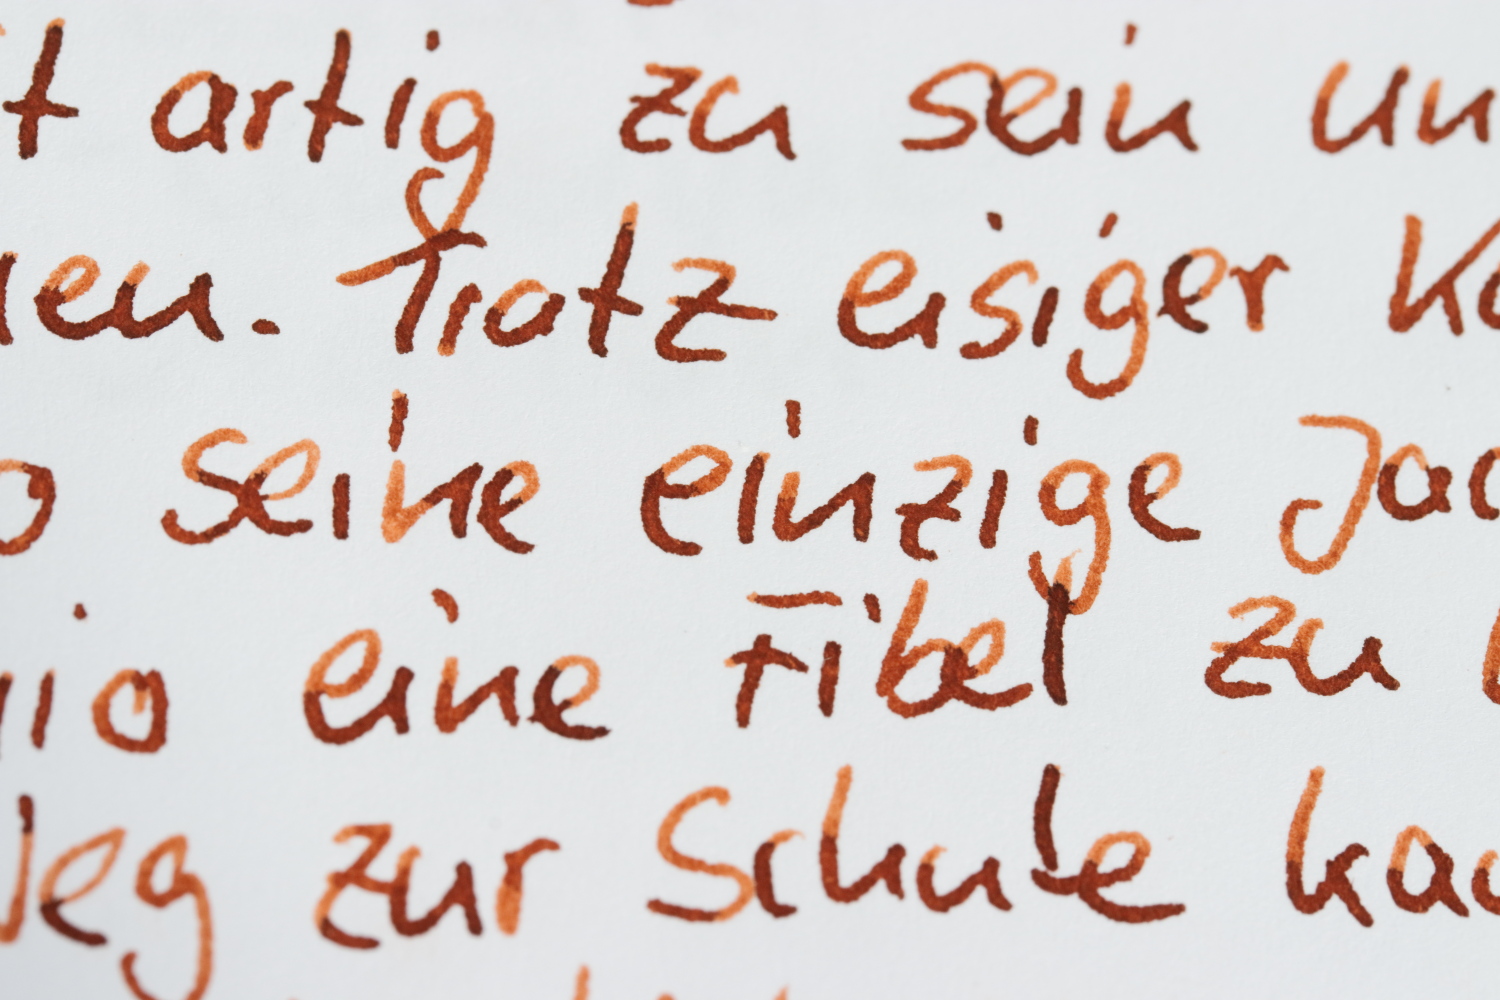 t artig zu sein un
nen. Trotz eisiger K
o seine einzige Jac
io eine Fibel zu
Weg zur Schule kau